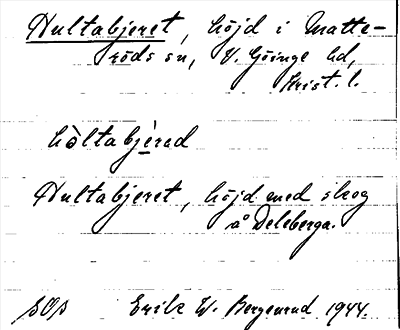 Hultabjeret, höjd i Matte-
röds sn, V. Göinge hd,
Krist. l.
hòltabjèrad
Hultabjeret, höjd med skog
å Deleberga.
SOS Erik W. Bergenrud 1944.